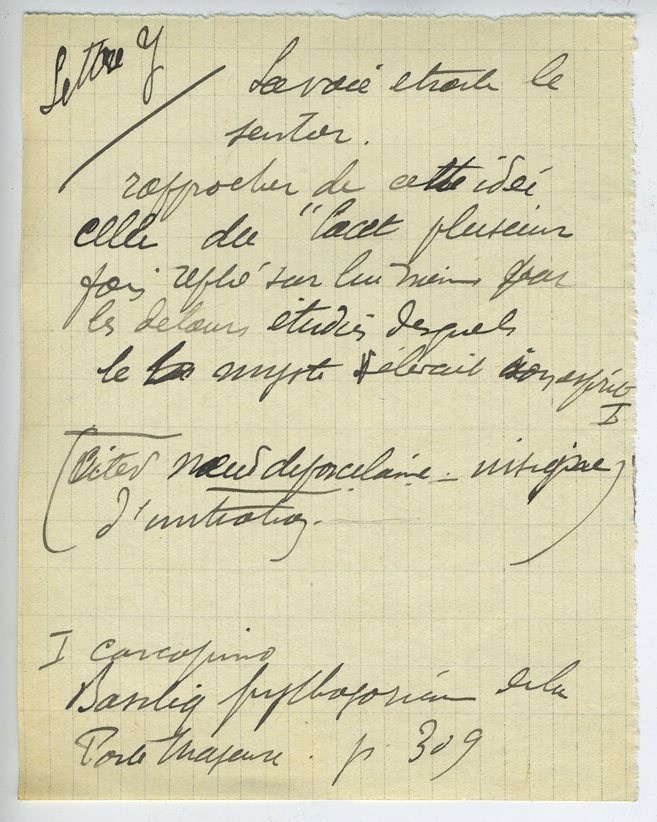 Lettre Y
La voie etroite le
sentier.
rapprocher de cette idée
celle du "lacet plusieurs
fois replié sur lui même par
les détours étudiés desquels
le myste élevait son esprit
I
(Citer nœud de porcelaine - insigne
d'initiation.)
I carcopino
Basiliq pythagoricien de la
Porte Majeure. p. 309